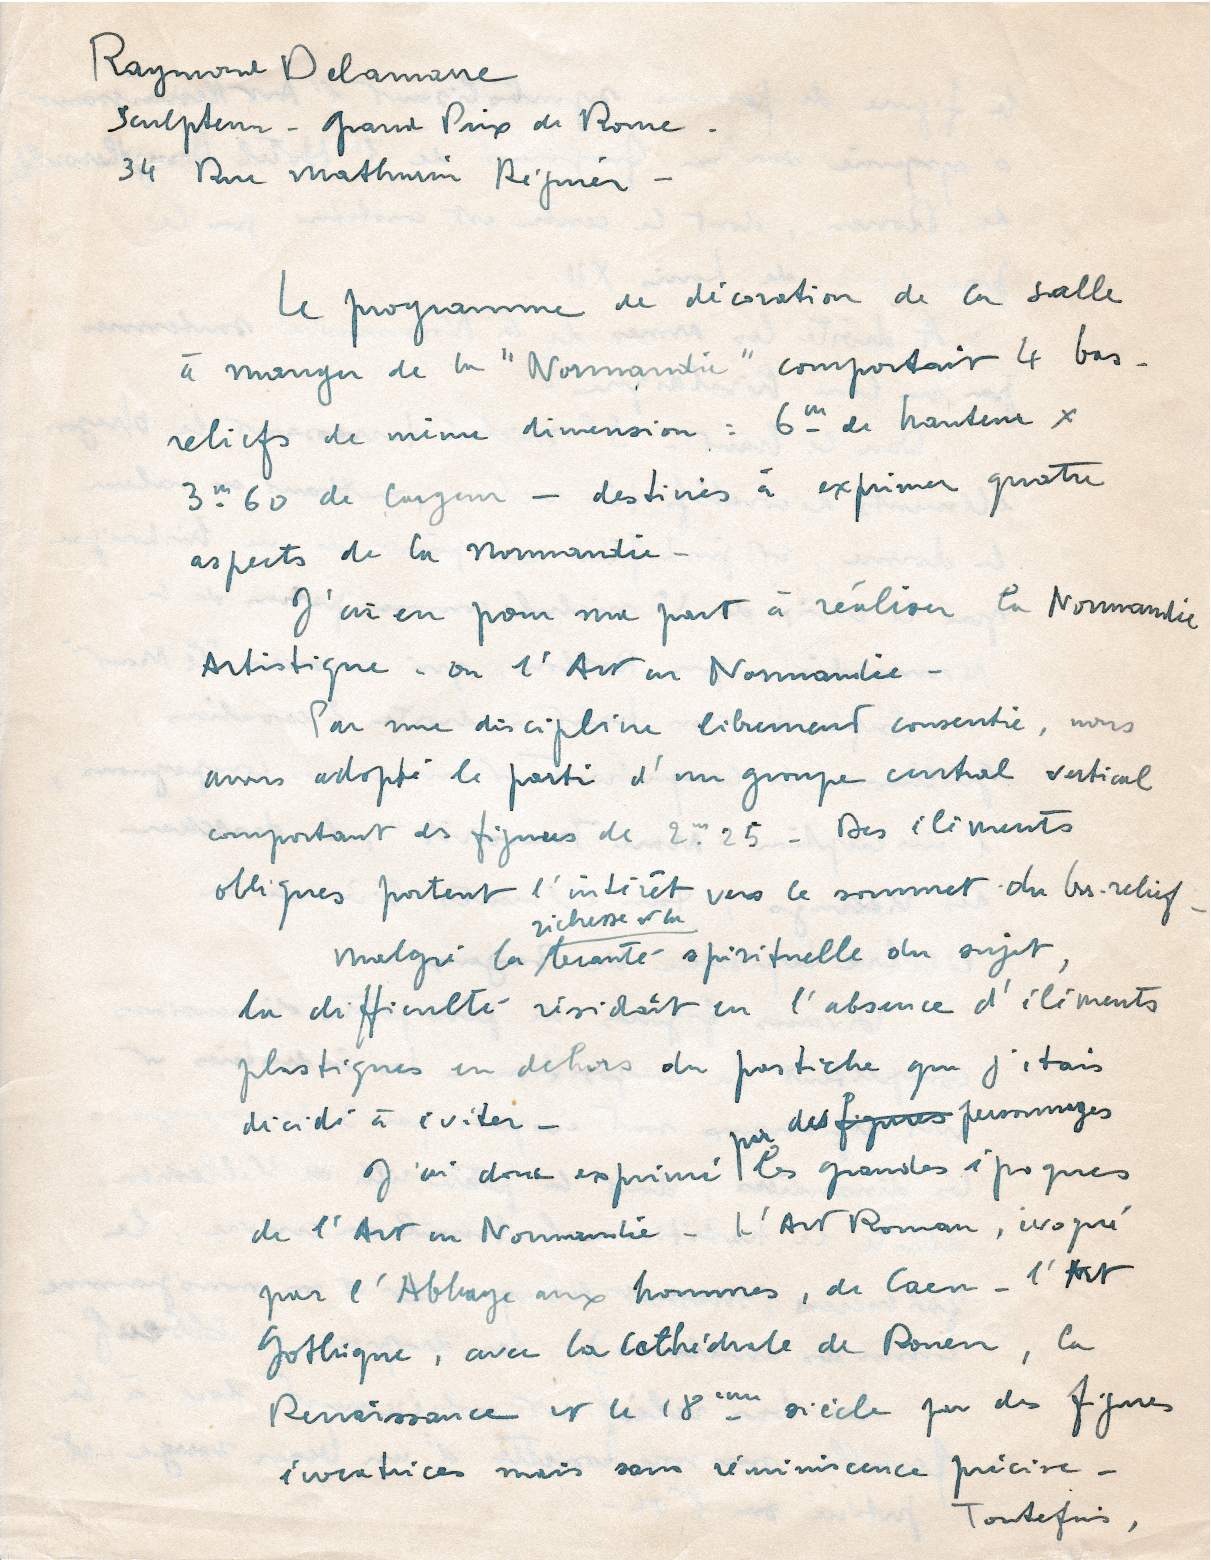 Raymond Delamarre
Sculpteur - grand Prix de Rome -
34 Rue Mathurin Régnier -
Le programme de décoration de la salle
à manger de la "Normandie" comportait 4 bas-
reliefs de même dimension : 6m de hauteur x
3m 60 de largeur - destinés à exprimer quatre
aspects de la Normandie -
J'ai eu pour ma part à réaliser la Normandie
Artistique - ou l'Art en Normandie -
Par une discipline librement consentie, nous
avons adopté le parti d'un groupe central vertical
comportant des figures de 2m 25 - Des éléments
obliques portent l'intérêt vers le sommet du bas-relief -
richesse et la
Malgré la beauté spirituelle du sujet,
la difficulté résidait en l'absence d'éléments
plastiques en dehors du pastiche que j'étais
décidé à éviter -
par des figures personnages
J'ai donc exprimé les grandes époques
de l'Art en Normandie - L'Art Roman, évoqué
par l'Abbaye aux hommes, de Caen - l'Art
Gothique, avec la Cathédrale de Rouen, la
Renaissance et le 18ème siècle par des figures
évocatrices mais sans réminiscence précise -
Toutefois,